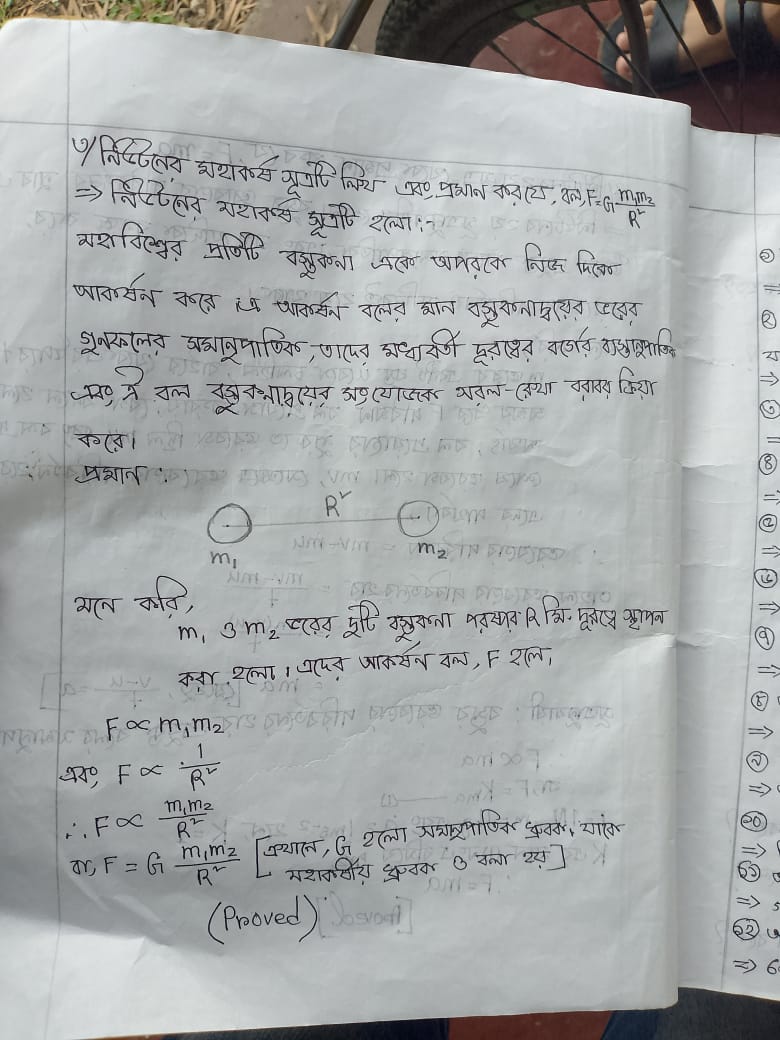 ৩/ নিউটনের মহাকর্ষ সূত্রটি লিখ এবং প্রমান কর যে, বল, F=G m₁m₂/R²
⇒ নিউটনের মহাকর্ষ সূত্রটি হলো:-
মহাবিশ্বের প্রতিটি বস্তুকনা একে অপরকে নিজ দিকে
আকর্ষন করে এ আকর্ষন বলের মান বস্তুকনাদ্বয়ের ভরের
গুনফলের সমানুপাতিক, তাদের মধ্যবর্তী দূরত্বের বর্গের ব্যস্তানুপাতিক
এবং ঐ বল বস্তুকনাদ্বয়ের সংযোজক সরল-রেখা বরাবর ক্রিয়া
করে।
প্রমান:
R²
m₁ m₂
মনে করি,
m₁ ও m₂ ভরের দুটি বস্তুকনা পরস্পর R মি. দূরত্বে স্থাপন
করা হলো। এদের আকর্ষন বল, F হলে,
F ∝ m₁m₂
এবং, F ∝ 1/R²
∴ F ∝ m₁m₂/R²
বা, F = G m₁m₂/R² [এখানে, G হলো সমানুপাতিক ধ্রুবক, যাকে
মহাকর্ষীয় ধ্রুবক ও বলা হয়]
(Proved)
১
⇒
২
য
⇒
৩
⇒
৪
⇒
৫
⇒
৬
⇒
৭
⇒
৮
⇒
৯
⇒
১০
⇒
১১
⇒
১২
⇒